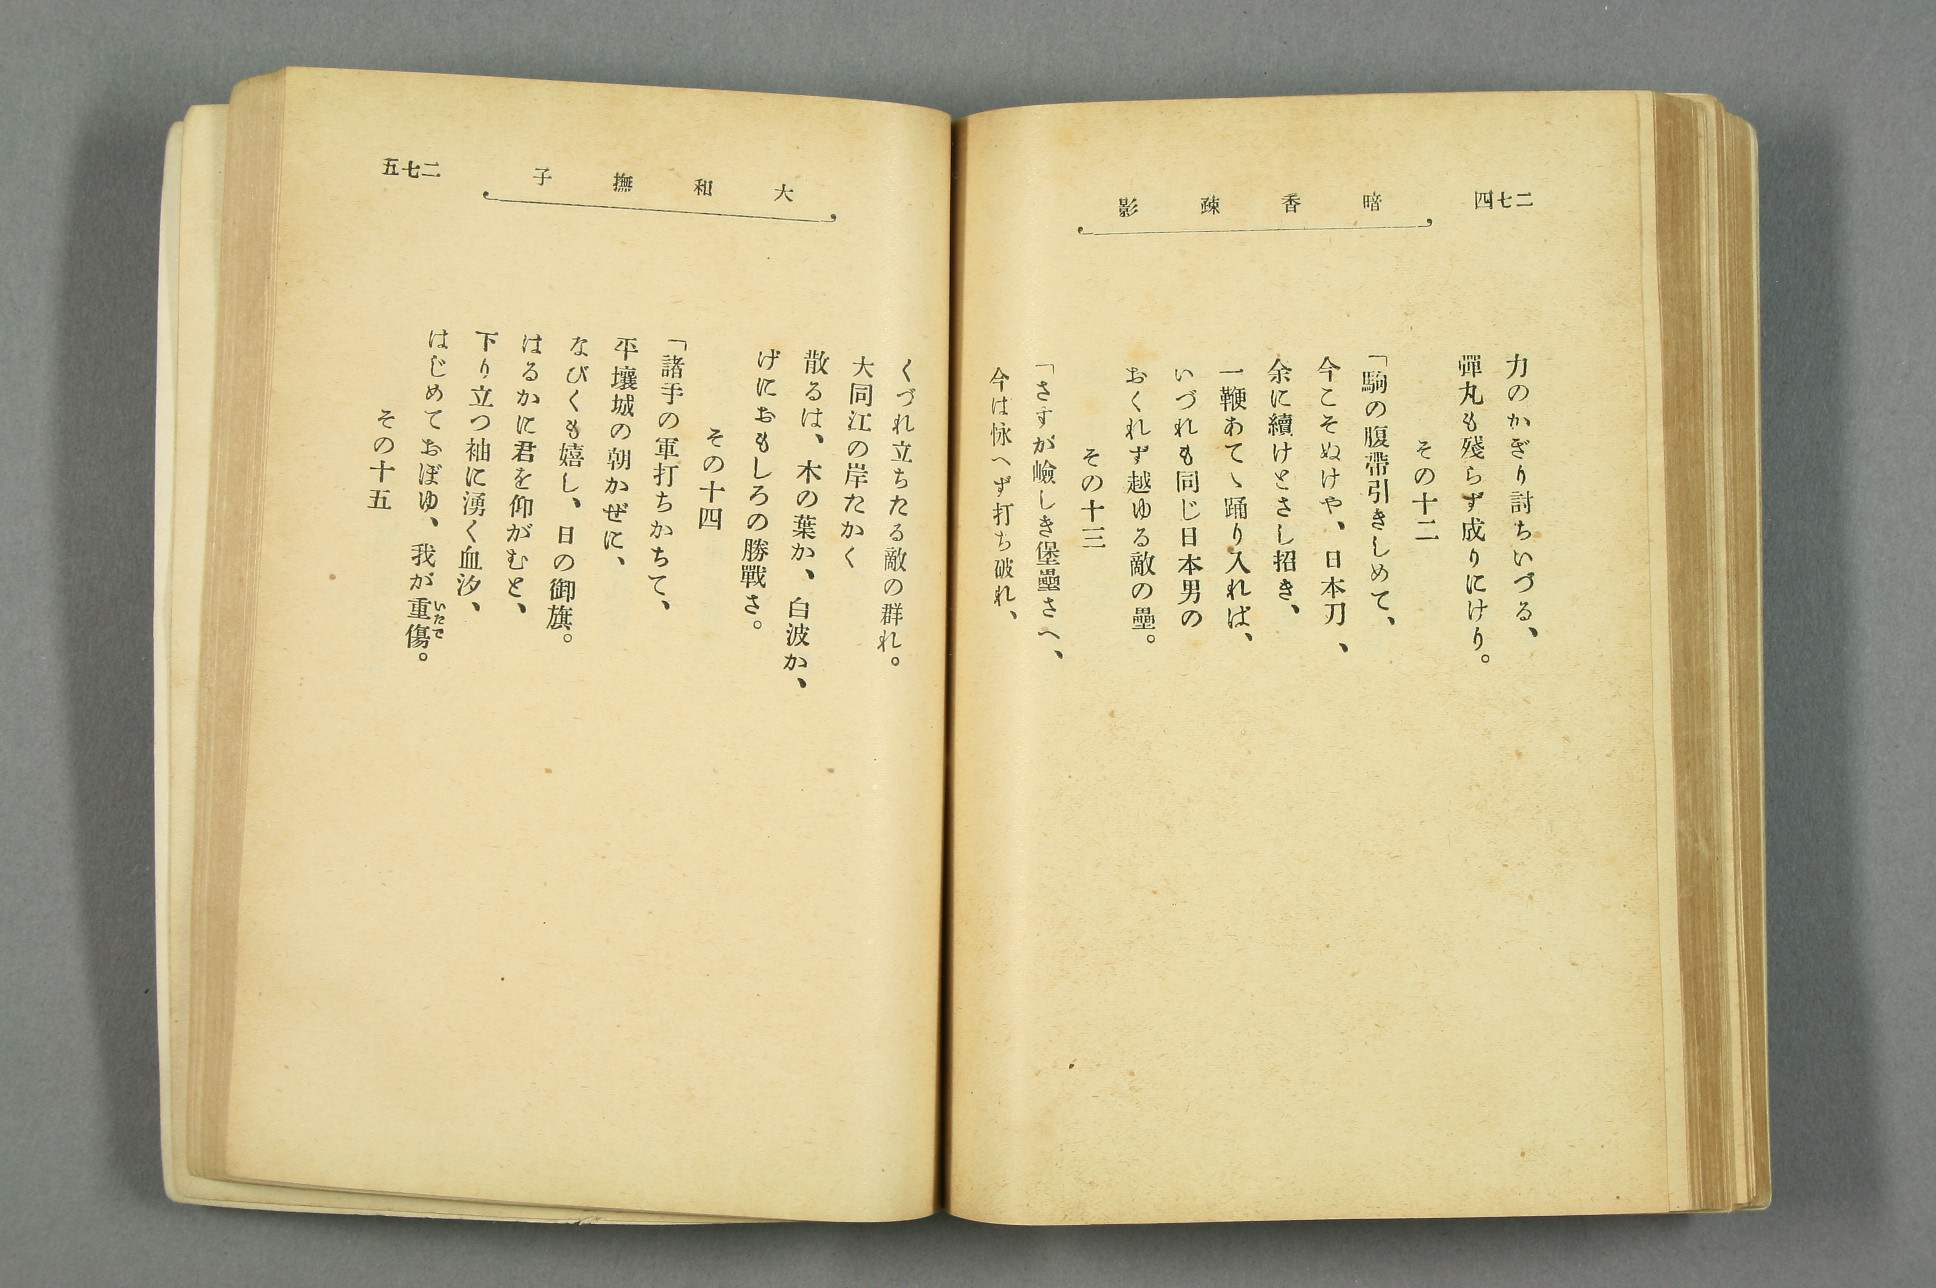 二七四
暗香疎影
力のかぎり討ちいづる、
彈丸も殘らず成りにけり。
その十二
「駒の腹帶引きしめて、
今こそぬけや、日本刀、
余に續けとさし招き、
一鞭あてゝ踊り入れば、
いづれも同じ日本男の
おくれず越ゆる敵の壘。
その十三
「さすが嶮しき堡壘さへ、
今は怺へず打ち破れ、
二七五
大和撫子
くづれ立ちたる敵の群れ。
大同江の岸たかく
散るは、木の葉か、白波か、
げにおもしろの勝戰さ。
その十四
「諸手の軍打ちかちて、
平壤城の朝かぜに、
なびくも嬉し、日の御旗。
はるかに君を仰がむと、
下り立つ袖に湧く血汐、
はじめておぼゆ、我が重傷。
いたで
その十五